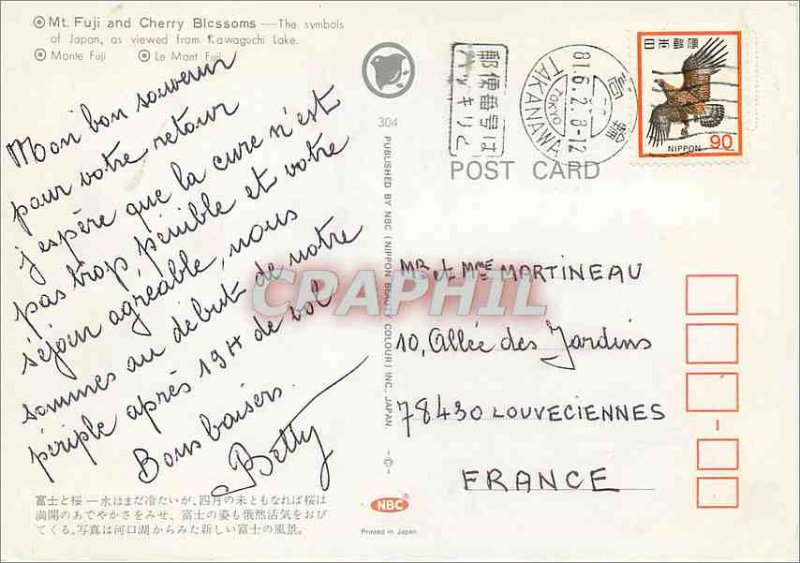 Mt. Fuji and Cherry Blossoms — The symbols
of Japan, as viewed from Kawaguchi Lake.
Monte Fuji Le Mont Fuji
Mon bon souvenir
pour votre retour
j'espère que la cure n'est
pas trop pénible et votre
séjour agréable, nous
sommes au début de notre
périple après 19H de vol
Bons baisers.
Betty
富士と桜―水はまだ冷たいが、四月の末ともなれば桜は
満開のあでやかさをみせ、富士の姿も俄然活気をおび
てくる。写真は河口湖からみた新しい富士の風景。
304
PUBLISHED BY NBC (NIPPON BEAUTY COLOUR) INC, JAPAN.
NBC
Printed in Japan
郵便番号は
ハッキリと
高輪
81.6.2.8-12
TOKYO
TAKANAWA
日本郵便
NIPPON 90
POST CARD
CPAPHIL
MR et MME MARTINEAU
10, Allée des Jardins
78430 LOUVECIENNES
FRANCE